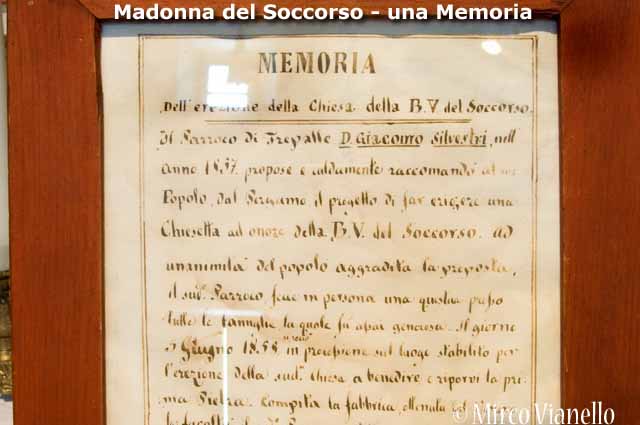 Madonna del Soccorso - una Memoria
MEMORIA
Dell'erezione della Chiesa della B.V. del Soccorso.
Il Parroco di Trepalle D. Giacomo Silvestri, nell'
anno 1857. propose e caldamente raccomandò al
Popolo, dal Pergamo il progetto di far erigere una
Chiesetta ad onore della B.V. del Soccorso. Ad
unanimità del popolo aggradita la proposta,
il sud. Parroco, fece in persona una questua presso
tutte le famiglie la quale fù assai generosa. Il giorno
Giugno 1858 in processione sul luogo stabilito per
l'erezione della sud. chiesa a benedire e riporvi la pri
ma Pietra. Compita la fabbrica, ottenuta
© Mirco Vianello